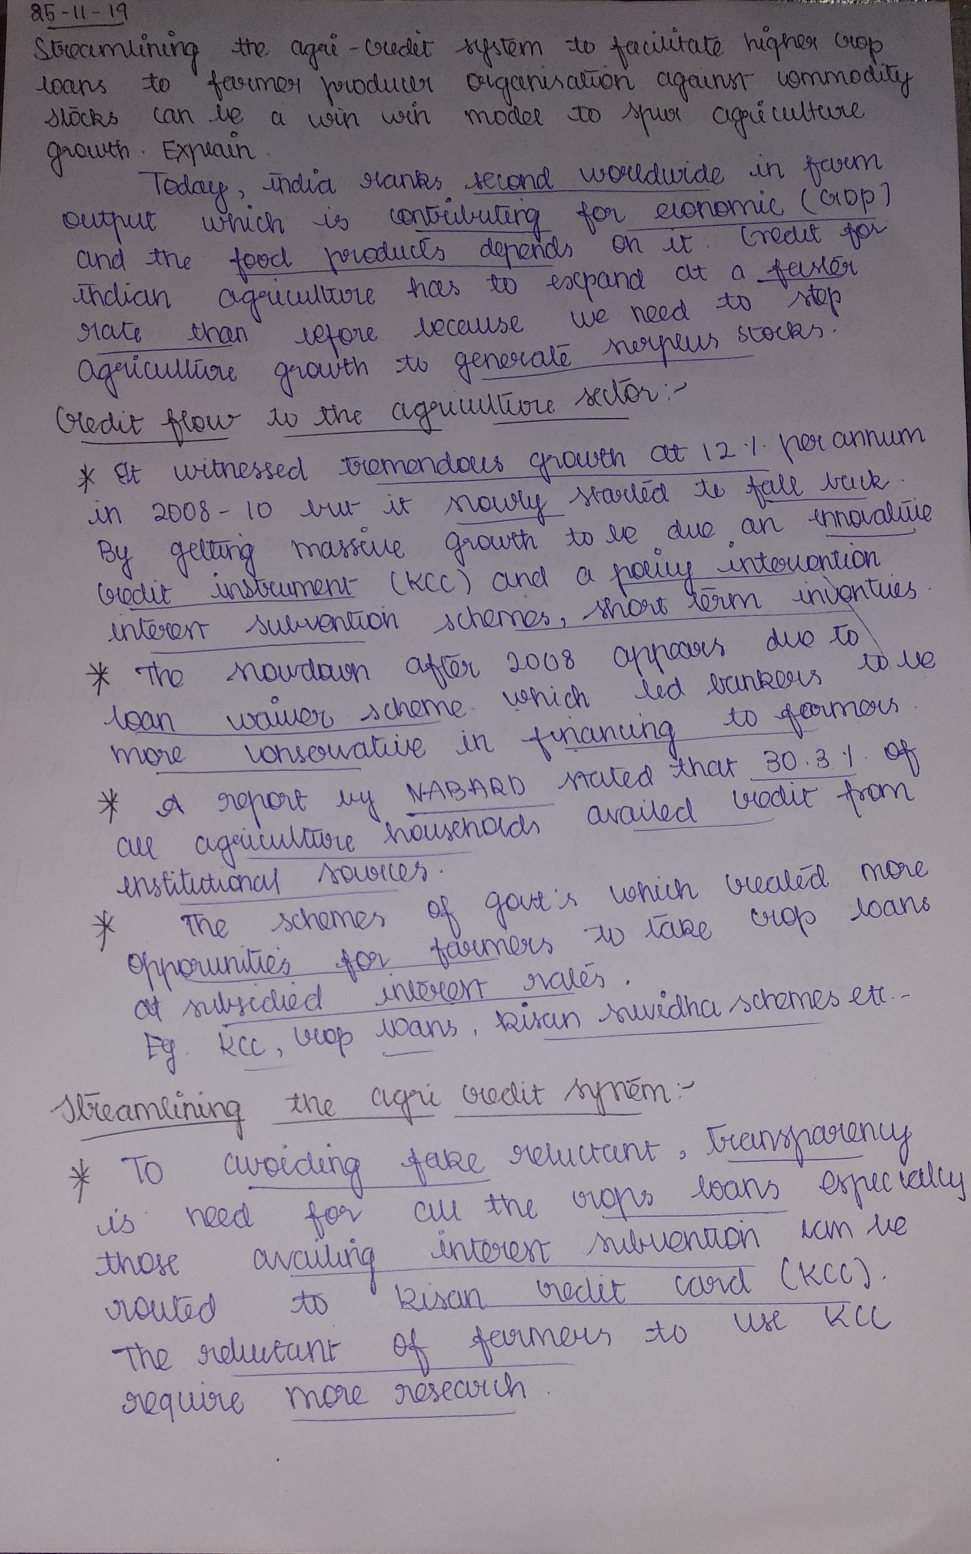 25-11-19
Streamlining the agri-credit system to facilitate higher crop
loans to farmer producer organisation against commodity
stocks can be a win win model to spur agriculture
growth. Explain.
Today, india ranks second worldwide in farm
output which is contributing for economic (crop)
and the food products depends on it. Credit for
indian agriculture has to expand at a faster
rate than before because we need to step
agriculture growth to generate surplus stocks.
Credit flow to the agriculture sector:-
* It witnessed tremendous growth at 12% per annum
in 2008-10 but it slowly started to fall back.
By getting massive growth to be due an innovative
credit instrument (KCC) and a policy intervention
interest subvention schemes, short term
* The slowdown after 2008 appears due to
loan waiver scheme which led bankers to be
more conservative in financing to farmers.
* A report by NABARD stated that 30.3% of
all agriculture households availed credit from
institutional sources.
* The schemes of govt's which created more
opporunities for farmers to take crop loans
at subsidied interest rates.
Eg. KCC, crop loans, kisan suvidha schemes etc.-
Streamlining the agri credit system:-
* To avoiding fake reluctant, transparency
is need for all the crops loans especially
those availing interest subvention can be
routed to kisan credit card (KCC).
The reluctant of farmers to use KCC
require more research.